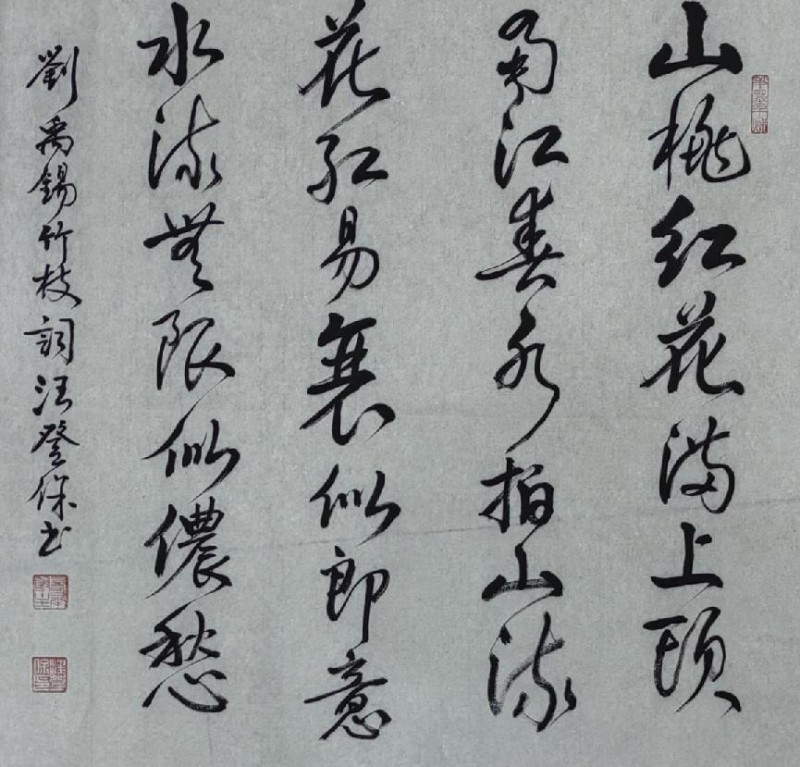 山桃紅花滿上頭
蜀江春水拍山流
花紅易衰似郎意
水流無限似儂愁
劉禹錫竹枝詞汪登保書